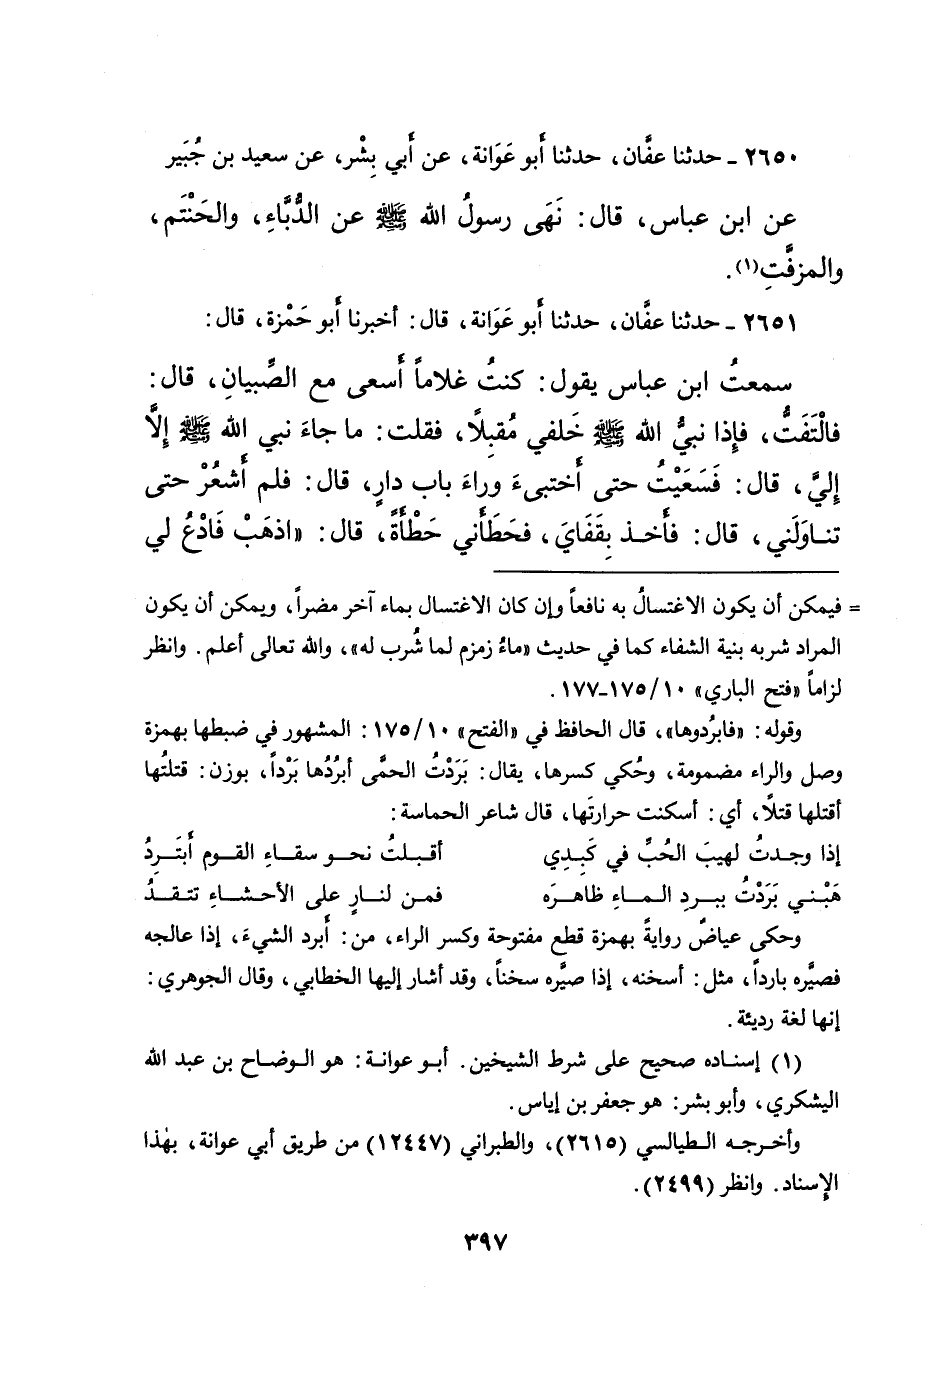 ٢٦٥٠ ـ حدثنا عفَّان، حدثنا أَبو عَوَانة، عن أَبي بِشْر، عن سعيد بن جُبَير
عن ابن عباس، قال: نَهَى رسولُ الله ﷺ عن الدُّبَّاءِ، والحَنْتَم،
والمزفَّتِ(١).
٢٦٥١ ـ حدثنا عفَّان، حدثنا أَبو عَوَانة، قال: أخبرنا أَبو حَمْزة، قال:
سمعتُ ابن عباس يقول: كنتُ غلاماً أَسعى مع الصِّبيانِ، قال:
فالْتَفَتُّ، فإِذا نبيُّ الله ﷺ خَلفي مُقبِلاً، فقلت: ما جاءَ نبي الله ﷺ إِلَّا
إِليَّ، قال: فَسَعَيْتُ حتى أَختبىءَ وراءَ باب دارٍ، قال: فلم أَشعُرْ حتى
تناوَلَني، قال: فأَخذ بِقَفَايَ، فحَطَأَني حَطْأَةً، قال: «اذهَبْ فَادْعُ لي
= فيمكن أن يكون الاغتسالُ به نافعاً وإن كان الاغتسال بماء آخر مضراً، ويمكن أن يكون
المراد شربه بنية الشفاء كما في حديث «ماءُ زمزم لما شُرب له»، والله تعالى أعلم. وانظر
لزاماً «فتح الباري» ١٠/ ١٧٥ـ١٧٧.
وقوله: «فابرُدوها»، قال الحافظ في «الفتح» ١٠/ ١٧٥: المشهور في ضبطها بهمزة
وصل والراء مضمومة، وحُكي كسرها، يقال: بَرَدْتُ الحمَّى أبرُدُها بَرْداً، بوزن: قتلتُها
أقتلها قتلاً، أي: أسكنت حرارتَها، قال شاعر الحماسة:
إذا وجدتُ لهيبَ الحُبِّ في كَبِدِي أقبلتُ نحو سقاءِ القوم أَبتَرِدُ
هَبْني بَرَدْتُ ببردِ الماءِ ظاهرَه فمن لنارٍ على الأحشاءِ تتقدُ
وحكى عياضٌ روايةً بهمزة قطع مفتوحة وكسر الراء، من: أَبرد الشيءَ، إذا عالجه
فصيَّره بارداً، مثل: أسخنه، إذا صيَّره سخناً، وقد أشار إليها الخطابي، وقال الجوهري:
إنها لغة رديئة.
(١) إسناده صحيح على شرط الشيخين. أبو عوانة: هو الوضاح بن عبد الله
اليشكري، وأبو بشر: هو جعفر بن إياس.
وأخرجه الطيالسي (٢٦١٥)، والطبراني (١٢٤٤٧) من طريق أبي عوانة، بهٰذا
الإِسناد. وانظر (٢٤٩٩).
٣٩٧